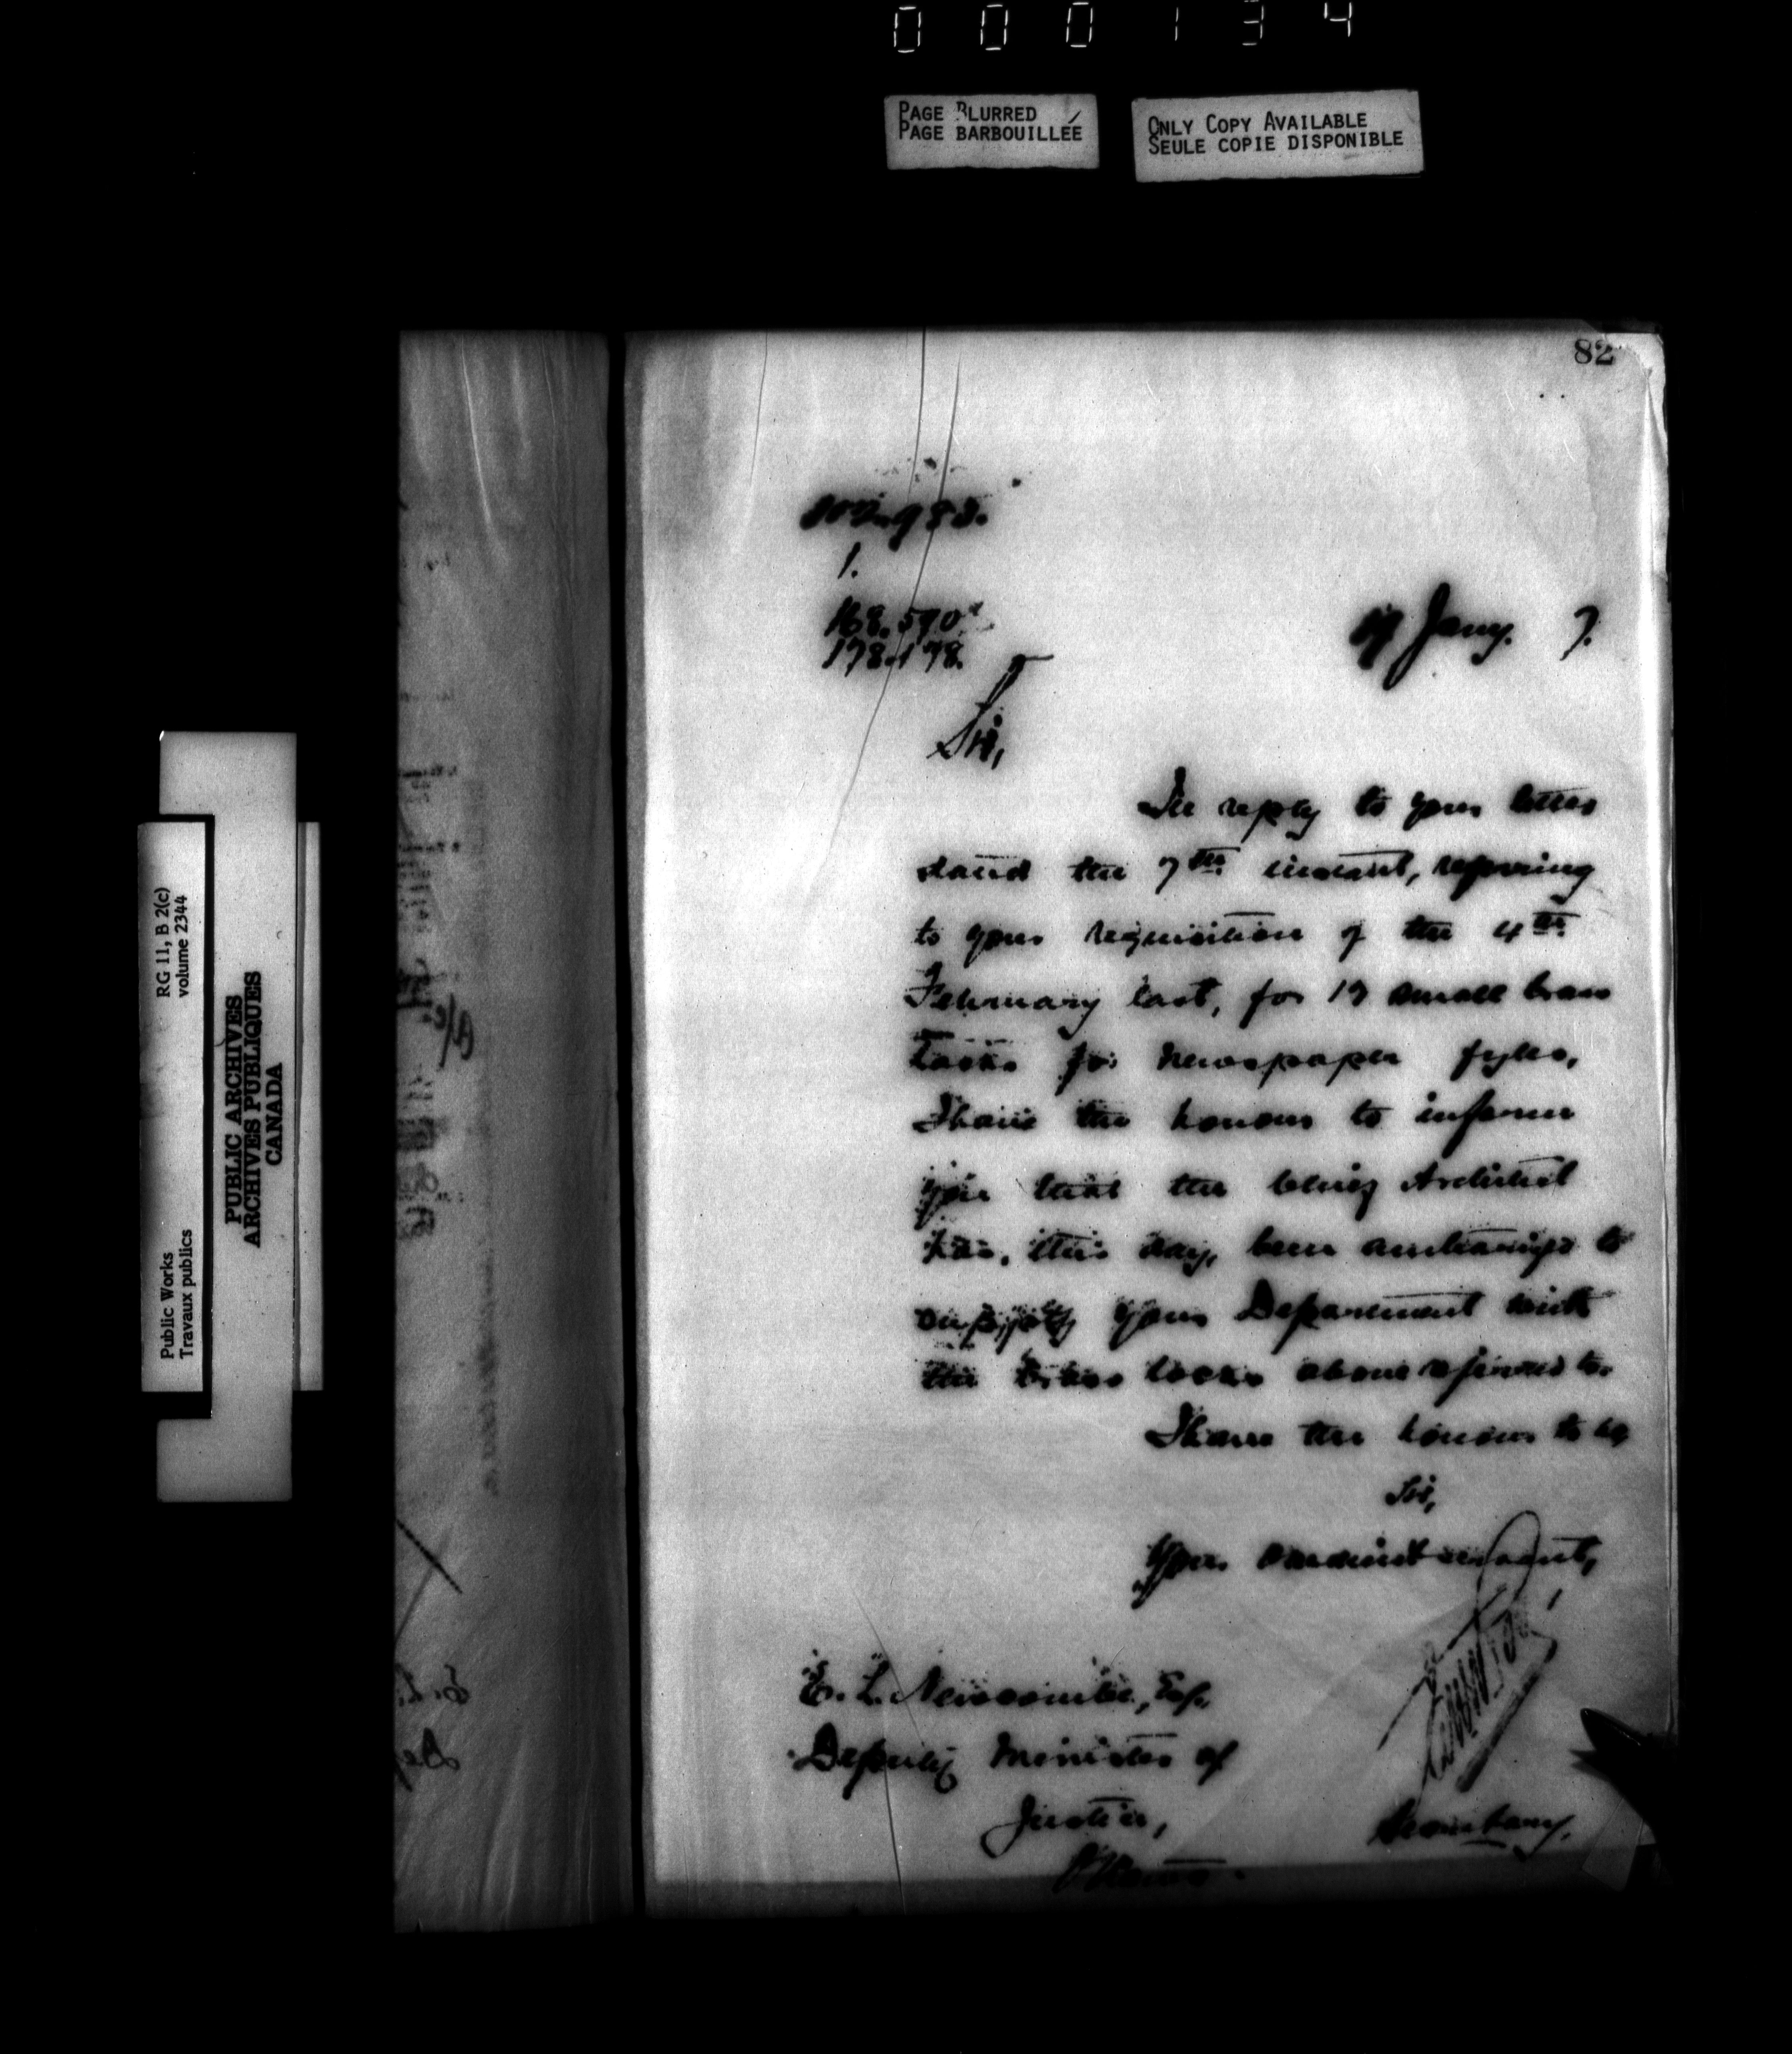 000134
PAGE BLURRED
PAGE BARBOUILLÉE
ONLY COPY AVAILABLE
SEULE COPIE DISPONIBLE
82
1.
168.570
178.178.
Jany. 7.
Sir,
In reply to your letter
dated the 7th instant, referring
to your requisition of the 4th
February last, for 19 small brass
locks for newspaper fyles,
I have the honour to inform
you that the Chief Architect
has, this day, been authorized to
supply your Department with
the brass locks above referred to.
I have the honour to be
Sir,
Your obedient servant,
E. L. Newcombe, Esq.
Deputy Minister of
Justice,
Ottawa.
Secretary.
RG 11, B 2(c)
volume 2344
Public Works
Travaux publics
PUBLIC ARCHIVES
ARCHIVES PUBLIQUES
CANADA